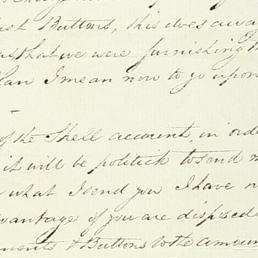 last Buttons, this does awa
as that we were furnishing th
lan I mean now to go upon
of the Shell account, in orde
it will be politick to send m
what I send you I have n
vantage if you are disposed
ments & Buttons to the amoun